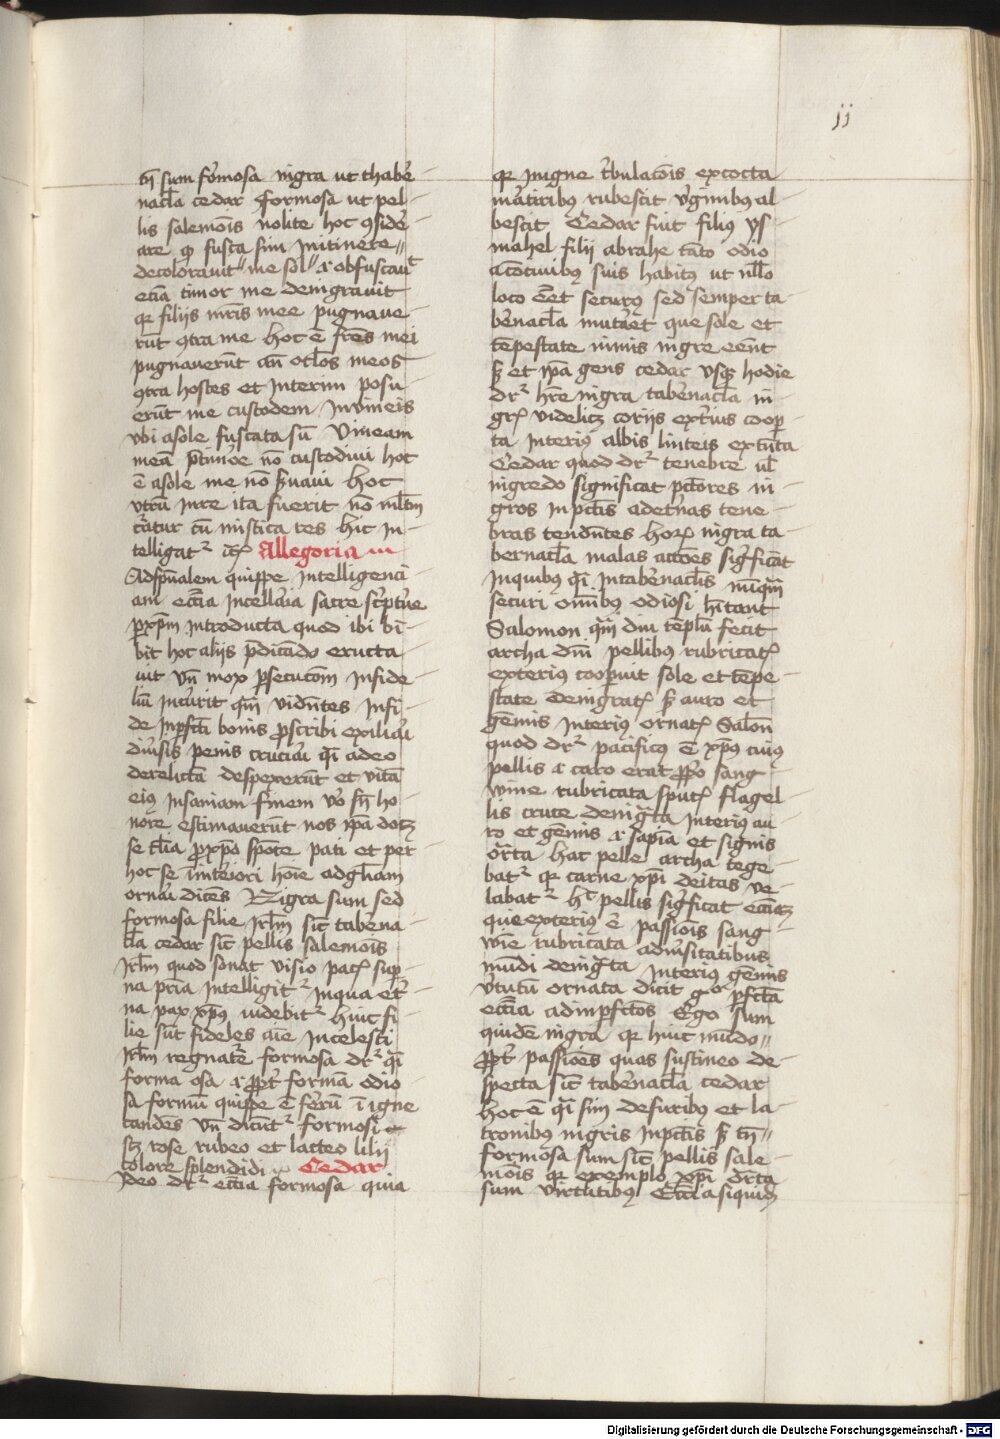 jj
tñ sum formosa nigra ut thabe-
nacła cedar formosa ut pel-
lis salemōis nolite hoc ꝯside-
are qꝫ fusca sim in itinere
decoloravit me sol et obfuscavᵗ
etiā timor me denigravit
qꝛ filijs mr̄is mee pugnave-
rūt ꝯtra me hoc ē fr̄es mei
pugnaverūt añ ocl̄os meos
ꝯtra hostes et interim posu-
erūt me custodem in vineis
vbi a sole fuscata sū Vineam
meā nō custodivi hoc
ē a sole me nō Hoc
utrū in re ita fuerit nō
cū mistica res hic in-
telligatᵣ Allegoria
Ad quippe intelligenci-
am eccīa in cellaria sacre scripture
introducta quod ibi bi-
bit hoc alijs p̄dicādo eructa-
vit vñ mox ꝑsecucōm infide-
liū incurrit qm̄ vidētes infi-
de bonis ꝓscribi exilia
penis cruciari qī adeo
derelictā despexerūt et vitā
eiꝰ insaniam finem v̄o sn̄ ho-
nore estimaverūt nos ip̄a
se pro xpō spōte pati et per
hoc se ī interiori hoīe ad gl̄iam
ornari dicēs Nigra sum sed
formosa filie Jrl̄m sic̄ tabena-
cl̄a cedar sic̄ pellis salemōis
Jrl̄m quod sonat visio pacꝭ suꝑ-
na pr̄ia intelligitᵣ in qua et̄-
na pax xpūs videbitᵣ huic fi-
lie sūt fideles aīe in celesti
Jrl̄m regnatēe formosa drᵣ qī
forma osa et ꝓpt̄ formā odio-
sa formū quippe ē ferū ī igne
candēs vñ dicūtᵣ formosi
scꝫ rose rubeo et lacteo lilij
colore splendidi Cedar
Ideo drᵣ eccīa formosa quia
qꝛ in igne tribulacōis excocta
martiribꝰ rubescit virginibꝰ al-
bescit Cedar fuit filiꝰ ys-
mahel filij abrahe tāto odio
a cōvivibꝰ suis habitꝰ ut nll̄o
loco eēt securꝰ sed semper ta-
benacl̄a mutaret que sole et
tēpestate nimis nigre eēnt
sꝫ et ip̄a gens cedar usqꝫ hodie
drᵣ hr̄e nigra tabenacl̄a ni-
grꝭ videlicꝫ corijs exteriꝰ cooꝑ-
ta interiꝰ albis linteis extēta
Cedar quod drᵣ tenebre vl̄
nigredo significat pctōres ni-
gros in pctīs ad et̄nas tene-
bras tendētes hoꝝ nigra ta-
bernacl̄a malas actōes sigficāt
in quibꝰ qī in tabenacl̄is nūqm̄
securi om̄ibꝰ odiosi hītant
Salomon qm̄ dn̄i tēplū fecit
archā dn̄i pellibꝰ rubricatꝭ
exteriꝰ cooperuit sole et tēpe-
state denigratꝭ sꝫ auro et
gēmis interiꝰ ornatꝭ Salōn
quod drᵣ pacificꝰ ē xpūs cuiꝰ
pellis et caro erat ꝓprio sang-
wine rubricata sputꝭ flagel-
lis cruce denigrāta interiꝰ au-
ro et gēmis et sapīa et signis
ornata hac pelle archa tege-
batᵣ qꝛ carne xpī deitas ve-
labatᵣ hᶜ pellis sigficat eccīaꝫ
que exteriꝰ ē passiōis sang-
wīe rubricata adversitatibus
mūdi denigrata interiꝰ gēmis
virtutū ornata dicit gᵒ ꝑfcta
eccīa ad inꝑfctos Ego sum
quidē nigra qꝛ huic mūdo
ꝓpt̄ passiōes quas sustineo de-
specta sic̄ tabenacl̄a cedar
Hoc ē qī sim de furibꝰ et la-
tronibꝰ nigris in pctīs sꝫ tñ
formosa sum sic̄ pellis sale-
mōis qꝛ exemplo xpī ornata
sum virtutibꝰ Eccīa siquidē
Digitalisierung gefördert durch die Deutsche Forschungsgemeinschaft - DFG